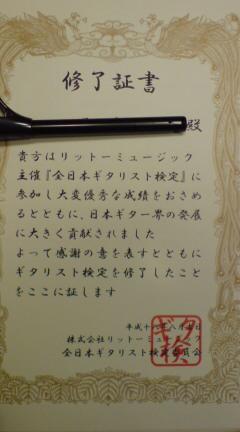 修了証書
殿
貴方はリットーミュージック
主催『全日本ギタリスト検定』に
参加し大変優秀な成績をおさめ
るとともに、日本ギター界の発展
に大きく貢献されました
よって感謝の意を表すとともに
ギタリスト検定を修了したこと
をここに証します
平成十 年八月 日
株式会社リットーミュージック
全日本ギタリスト検定委員会
ギタ
検